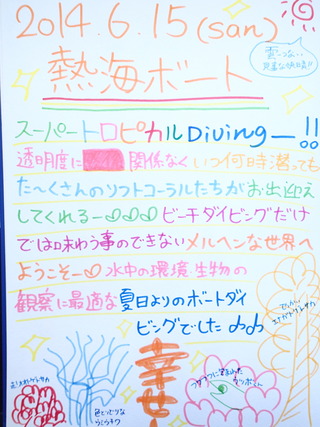 2014.6.15(san)
雲一つない
見事な晴日!!
熱海ボート
スーパートロピカルDiving—!!
透明度に関係なくいつ何時潜っても
た〜くさんのソフトコーラルたちがお出迎え
してくれるー♡♡♡ビーチダイビングだけ
では味わう事のできないメルヘンな世界へ
ようこそー♡水中の環境・生物の
観察に最適な夏日よりのボートダイ
ビングでした♪♪
幸せ
色とりどりな